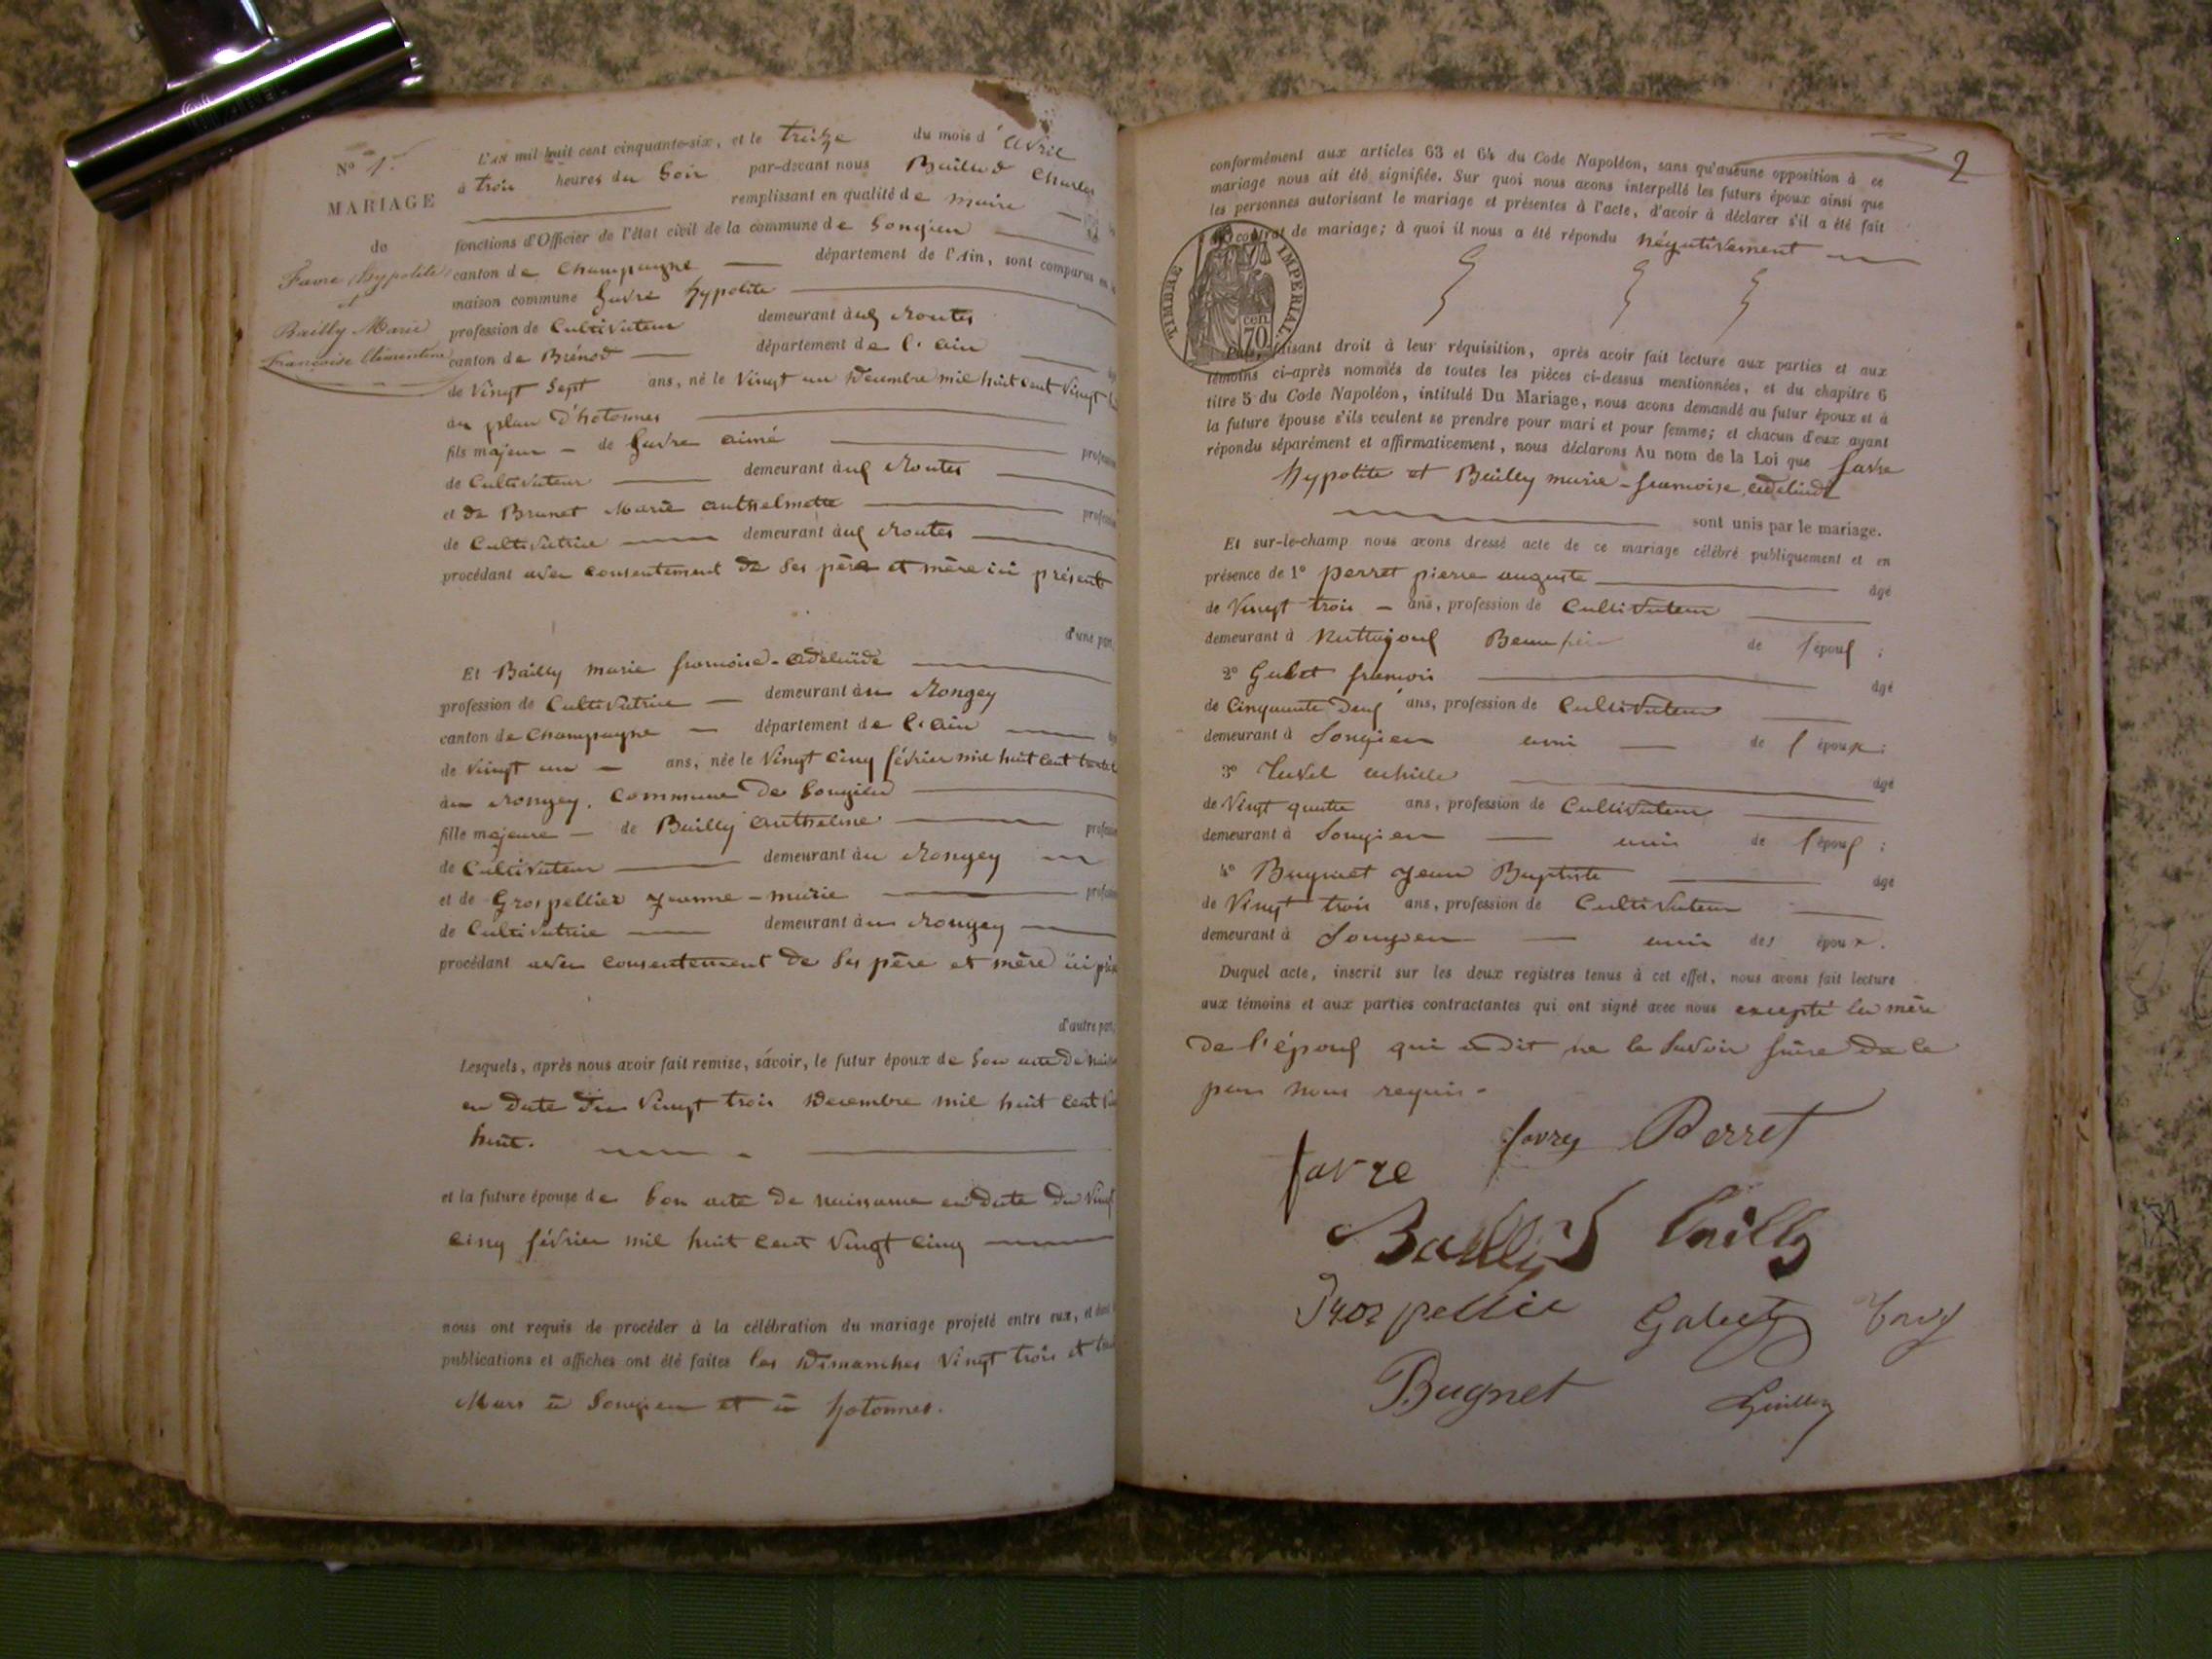 N° 1.
MARIAGE
de
Favre, Hypolite
et
Bailly Marie
Françoise Clémentine
L'an mil huit cent cinquante-six, et le treize du mois d'Avril
à trois heures du Soir par-devant nous Charles
remplissant en qualité de maire
fonctions d'Officier de l'état civil de la commune de Songieu
canton de Champagne département de l'Ain, sont comparus en la
maison commune favre hypolite
profession de Cultivateur demeurant aux Routes
canton de Brénod département de l'ain
de Vingt Sept ans, né le Vingt un Decembre mil huit cent Vingt
au plan d'hotonnes
fils majeur de favre aimé profession
de Cultivateur demeurant aux Routes
et de Brunet Marie anthelmette profession
de Cultivatrice demeurant aux Routes
procédant avec consentement de Ses père et mère ici présents
d'une part,
Et Bailly marie francoise-adelaïde
profession de Cultivatrice demeurant au Rongey
canton de Champagne département de l'ain
de Vingt un ans, née le Vingt cinq février mil huit cent
au Rongey, commune De Songieu
fille majeure de Bailly anthelme profession
de Cultivateur demeurant au Rongey
et de Grospellier Jeanne-marie profession
de Cultivatrice demeurant au Rongey
procédant avec consentement de Ses père et mère ici
d'autre part,
Lesquels, après nous avoir fait remise, savoir, le futur époux de Son acte De
en Date Du Vingt trois Decembre mil huit Cent
huit.
et la future épouse de Son acte De naissance en Date Du Vingt
cinq février mil huit cent Vingt cinq
nous ont requis de procéder à la célébration du mariage projeté entre eux, et dont
publications et affiches ont été faites les Dimanches Vingt trois et
Mars à Songieu et à hotonnes.
2
conformément aux articles 63 et 64 du Code Napoléon, sans qu'aucune opposition à ce
mariage nous ait été signifiée. Sur quoi nous avons interpellé les futurs époux ainsi que
les personnes autorisant le mariage et présentes à l'acte, d'avoir à déclarer s'il a été fait
contrat de mariage; à quoi il nous a été répondu négativement
TIMBRE IMPERIAL
70 cen
Puis, faisant droit à leur réquisition, après avoir fait lecture aux parties et aux
témoins ci-après nommés de toutes les pièces ci-dessus mentionnées, et du chapitre 6
titre 5 du Code Napoléon, intitulé Du Mariage, nous avons demandé au futur époux et à
la future épouse s'ils veulent se prendre pour mari et pour femme; et chacun d'eux ayant
répondu séparément et affirmativement, nous déclarons Au nom de la Loi que favre
hypolite et Bailly marie-francoise adelaïde
sont unis par le mariage.
Et sur-le-champ nous avons dressé acte de ce mariage célébré publiquement et en
présence de 1° perret pierre auguste âgé
de Vingt trois ans, profession de Cultivateur
demeurant à Ruttajoux Beau frère de l'époux ;
2° Galet francois âgé
de Cinquante Deux ans, profession de Cultivateur
demeurant à Songieu ami de l'époux ;
3° achille âgé
de Vingt quatre ans, profession de Cultivateur
demeurant à Songieu ami de l'époux ;
4° Bugnet Jean Baptiste âgé
de Vingt trois ans, profession de Cultivateur
demeurant à Songieu ami des époux.
Duquel acte, inscrit sur les deux registres tenus à cet effet, nous avons fait lecture
aux témoins et aux parties contractantes qui ont signé avec nous excepté la mère
De l'époux qui a dit ne le Savoir faire De ce
par nous requis.
favre Perret
Bailly Bailly
Grospellie Galet
Bugnet